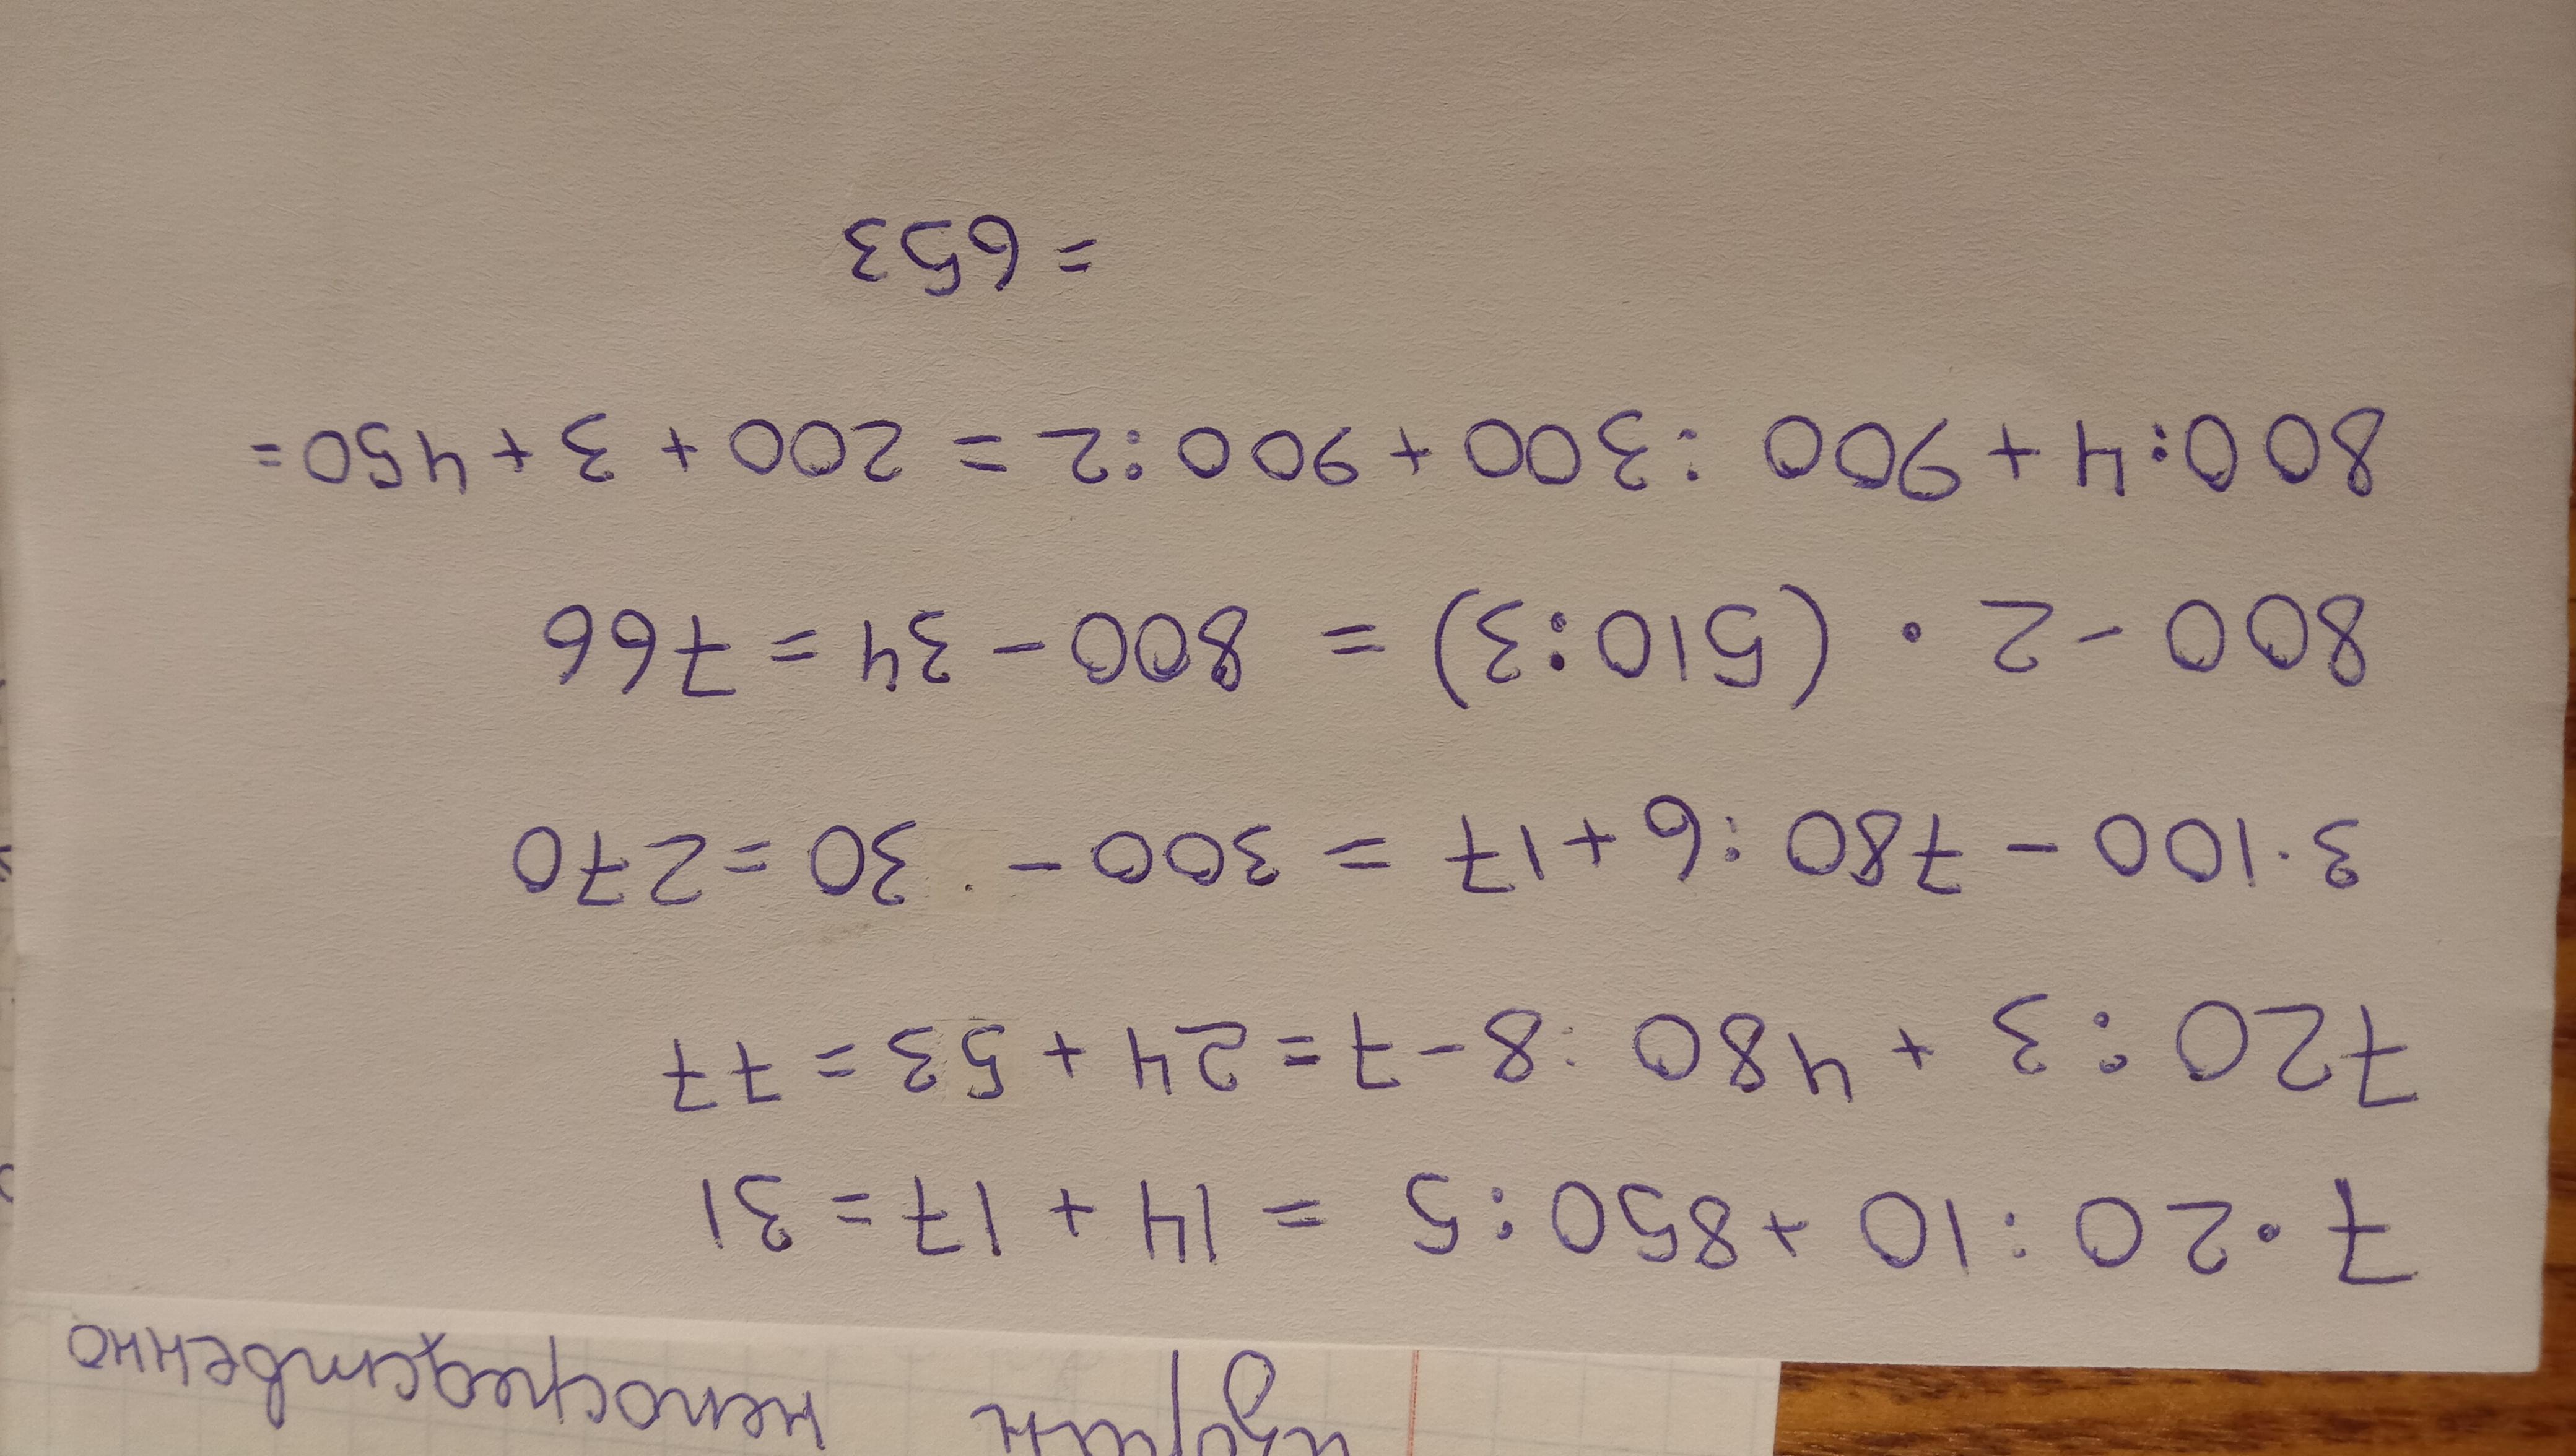 непосредственно
7·20:10+850:5 = 14+17=31
720:3+480:8-7=24+53=77
3·100-780:6+17=300-30=270
800-2·(510:3)=800-34=766
800:4+900:300+900:2=200+3+450=
=653